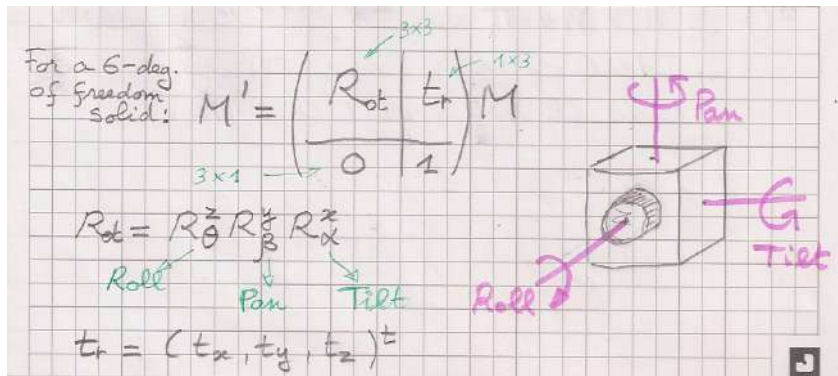 For a 6-deg.
of freedom
solid:
M' = ( Rot | tr / 0 | 1 ) M
3x3
1x3
3x1
Rot = R^z_θ R^y_β R^x_α
Roll
Pan
Tilt
tr = (tx, ty, tz)^t
Pan
Tilt
Roll